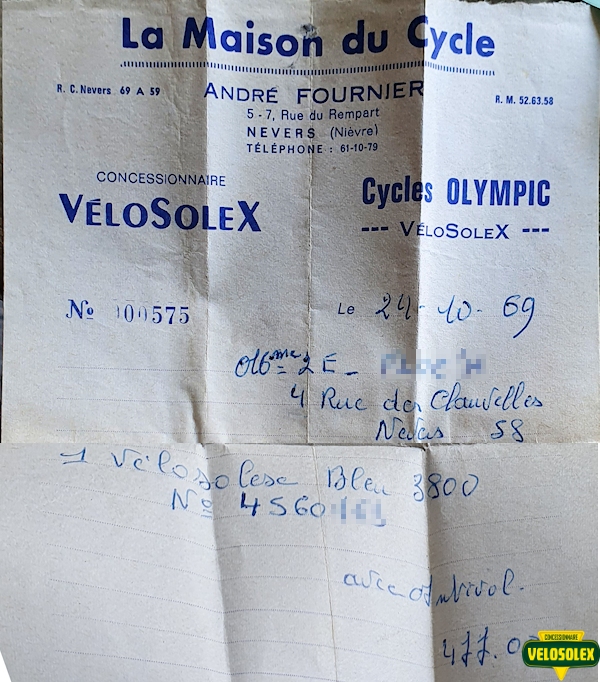 La Maison du Cycle
R.C. Nevers 69 A 59
ANDRÉ FOURNIER
R. M. 52.63.58
5 - 7, Rue du Rempart
NEVERS (Nièvre)
TÉLÉPHONE : 61-10-79
CONCESSIONNAIRE
VÉLOSOLEX
Cycles OLYMPIC
--- VÉLOSOLEX ---
No 000575
Le 24-10-69
4 Rue des
Nevers 58
1 Vélosolex Bleu 3800
No 4560
avec antivol.
477.0
CONCESSIONNAIRE
VELOSOLEX